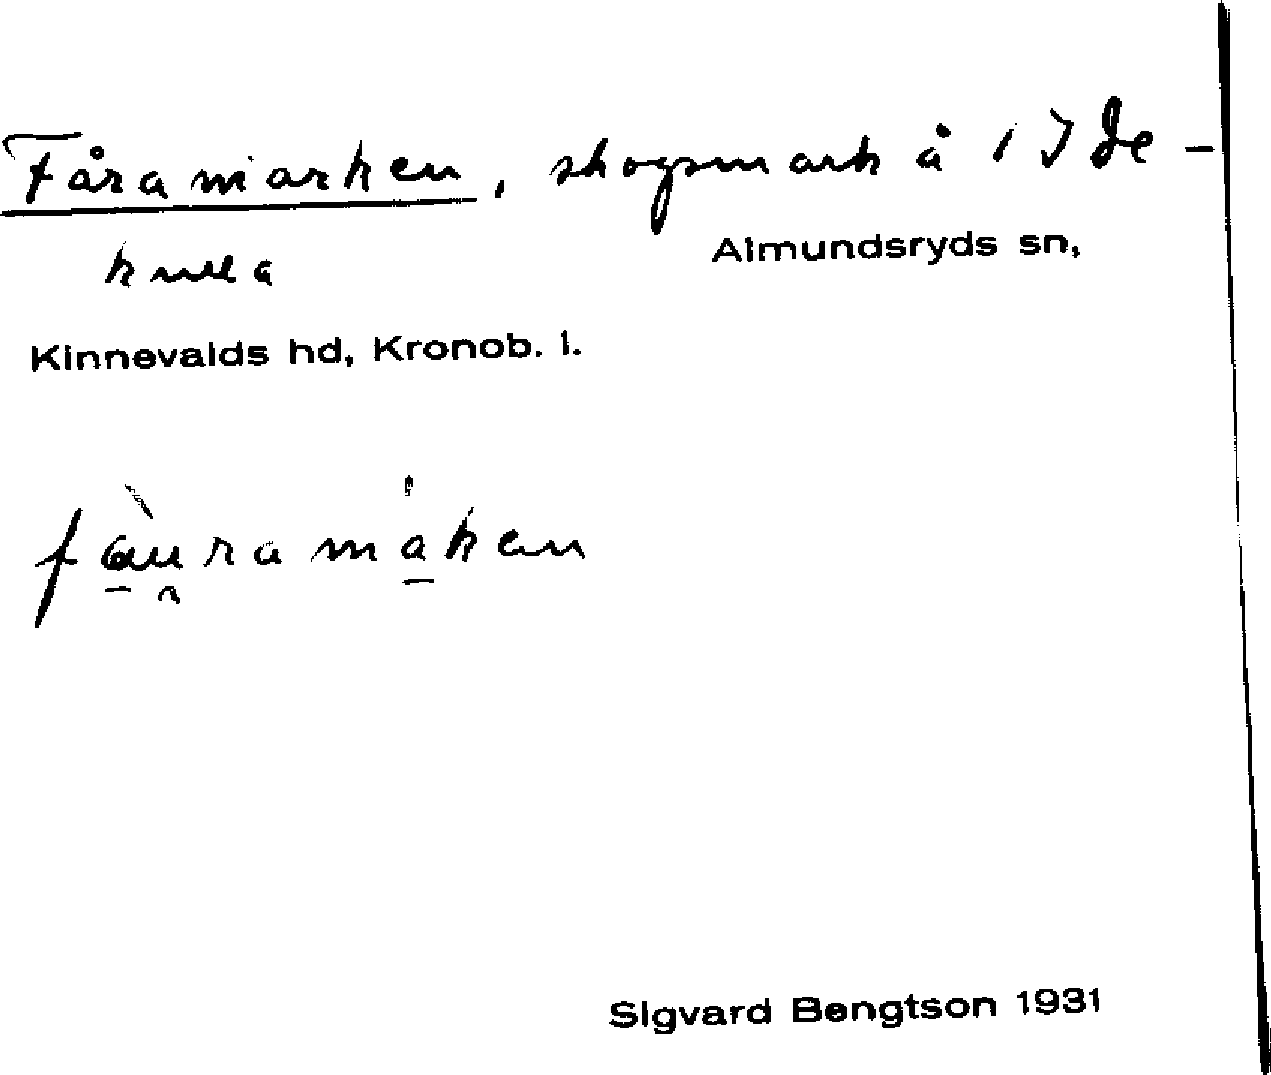 Fåramarken, skogsmark å 1 Ide-
kulla
Almundsryds sn,
Kinnevalds hd, Kronob. l.
fàu̯ramáken
Sigvard Bengtson 1931